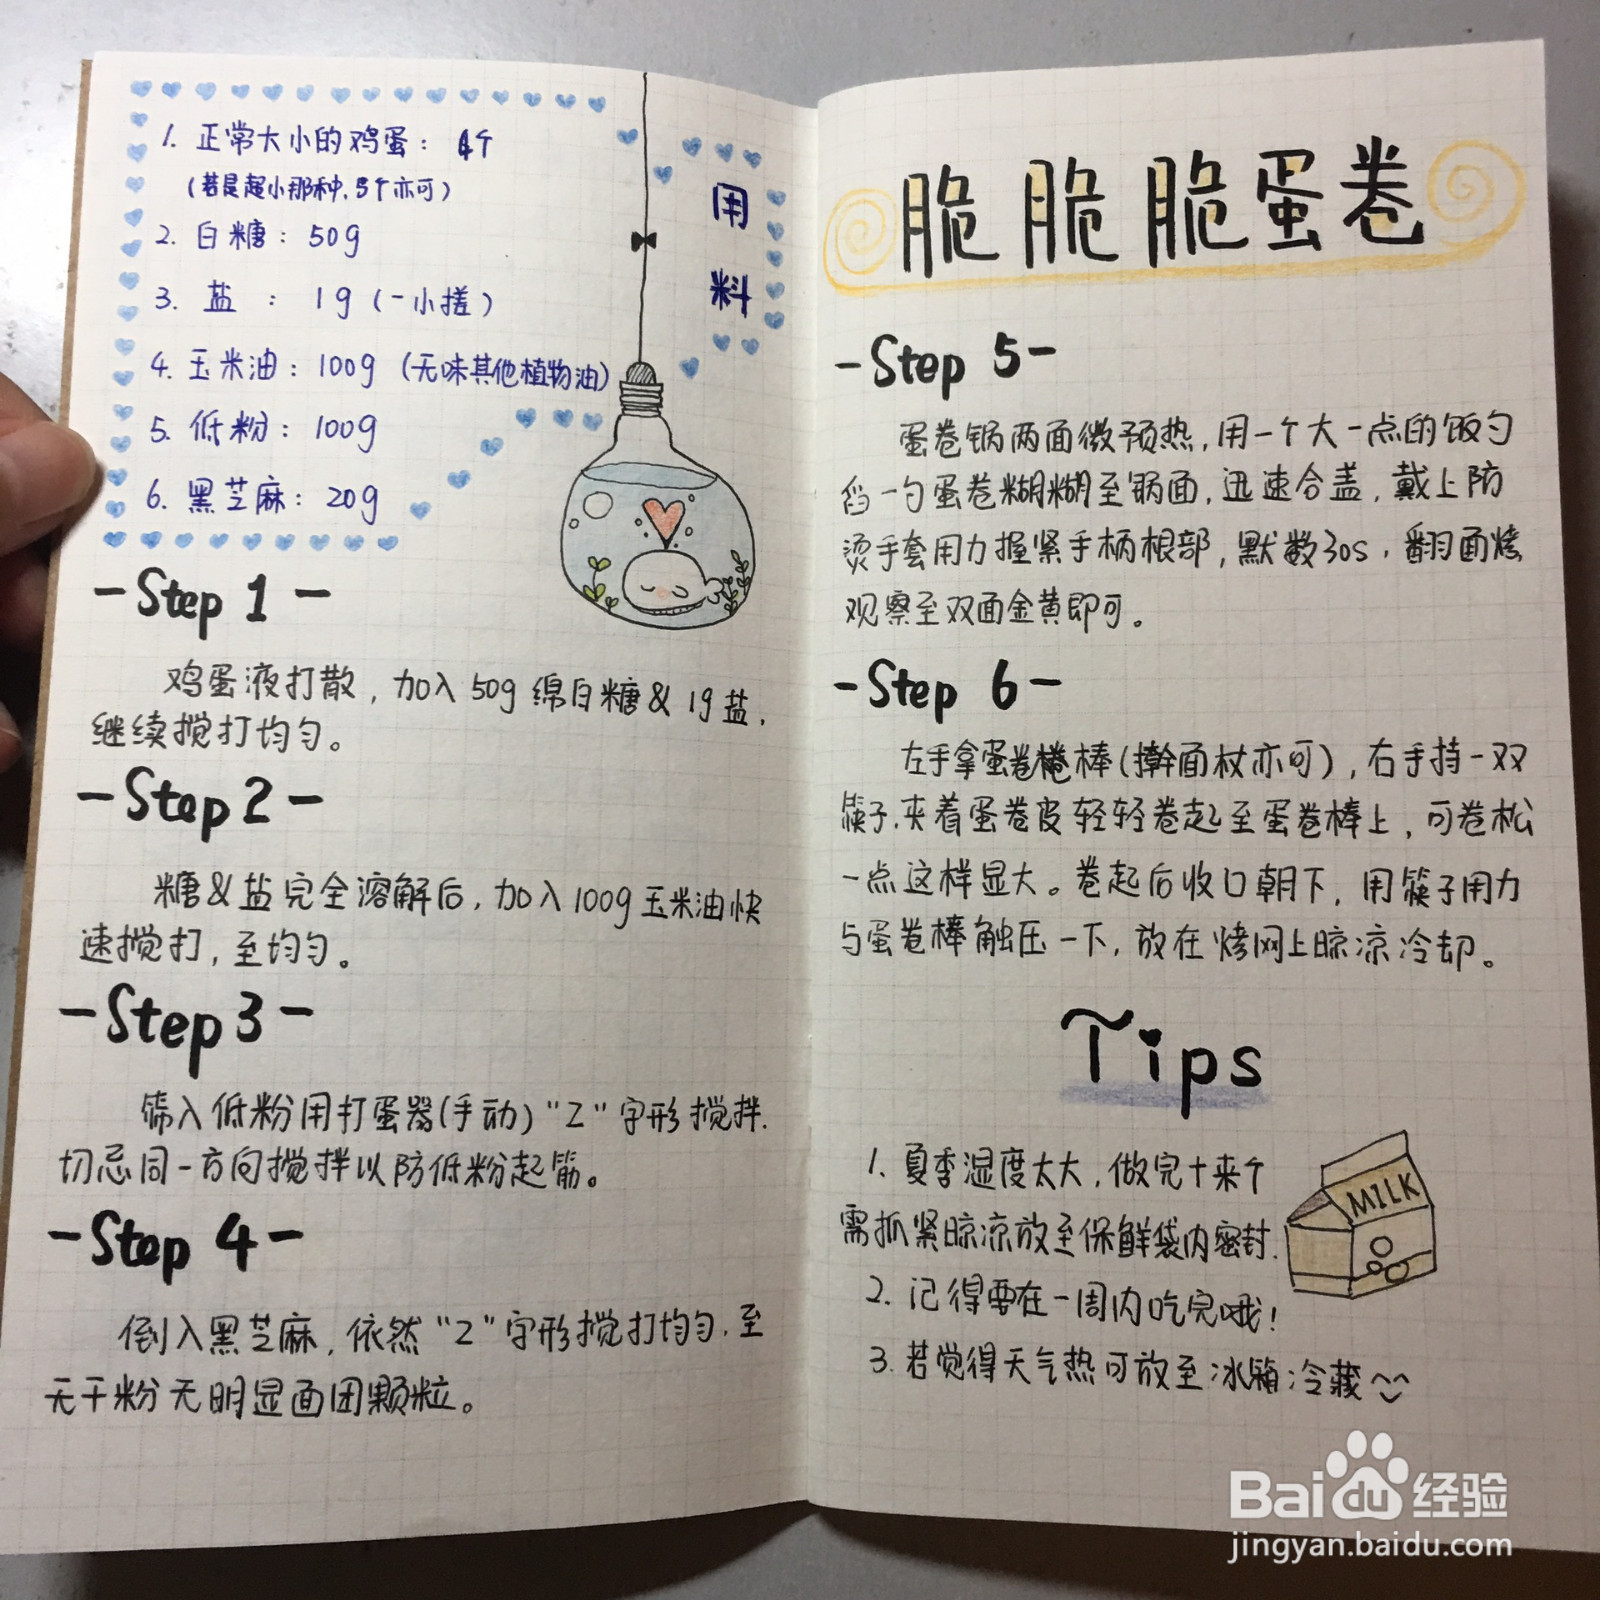 1. 正常大小的鸡蛋：4个
（若是超小那种，5个亦可）
2. 白糖：50g
3. 盐：1g（一小搓）
4. 玉米油：100g（无味其他植物油）
5. 低粉：100g
6. 黑芝麻：20g
用料
-Step 1-
鸡蛋液打散，加入50g绵白糖&1g盐，
继续搅打均匀。
-Step 2-
糖&盐完全溶解后，加入100g玉米油快
速搅打，至均匀。
-Step 3-
筛入低粉用打蛋器(手动)"Z"字形搅拌.
切忌同一方向搅拌以防低粉起筋。
-Step 4-
倒入黑芝麻，依然"Z"字形搅打均匀，至
无干粉无明显面团颗粒。
脆脆脆蛋卷
-Step 5-
蛋卷锅两面微预热，用一个大一点的饭勺
舀一勺蛋卷糊糊至锅面，迅速合盖，戴上防
烫手套用力握紧手柄根部，默数30s，翻面烤
观察至双面金黄即可。
-Step 6-
左手拿蛋卷棒(擀面杖亦可)，右手持一双
筷子，夹着蛋卷皮轻轻卷起至蛋卷棒上，可卷松
一点这样显大。卷起后收口朝下，用筷子用力
与蛋卷棒触压一下，放在烤网上晾凉冷却。
Tips
1. 夏季湿度太大，做完十来个
需抓紧晾凉放至保鲜袋内密封.
2. 记得要在一周内吃完哦！
3. 若觉得天气热可放至冰箱冷藏
MILK
Baidu经验
jingyan.baidu.com